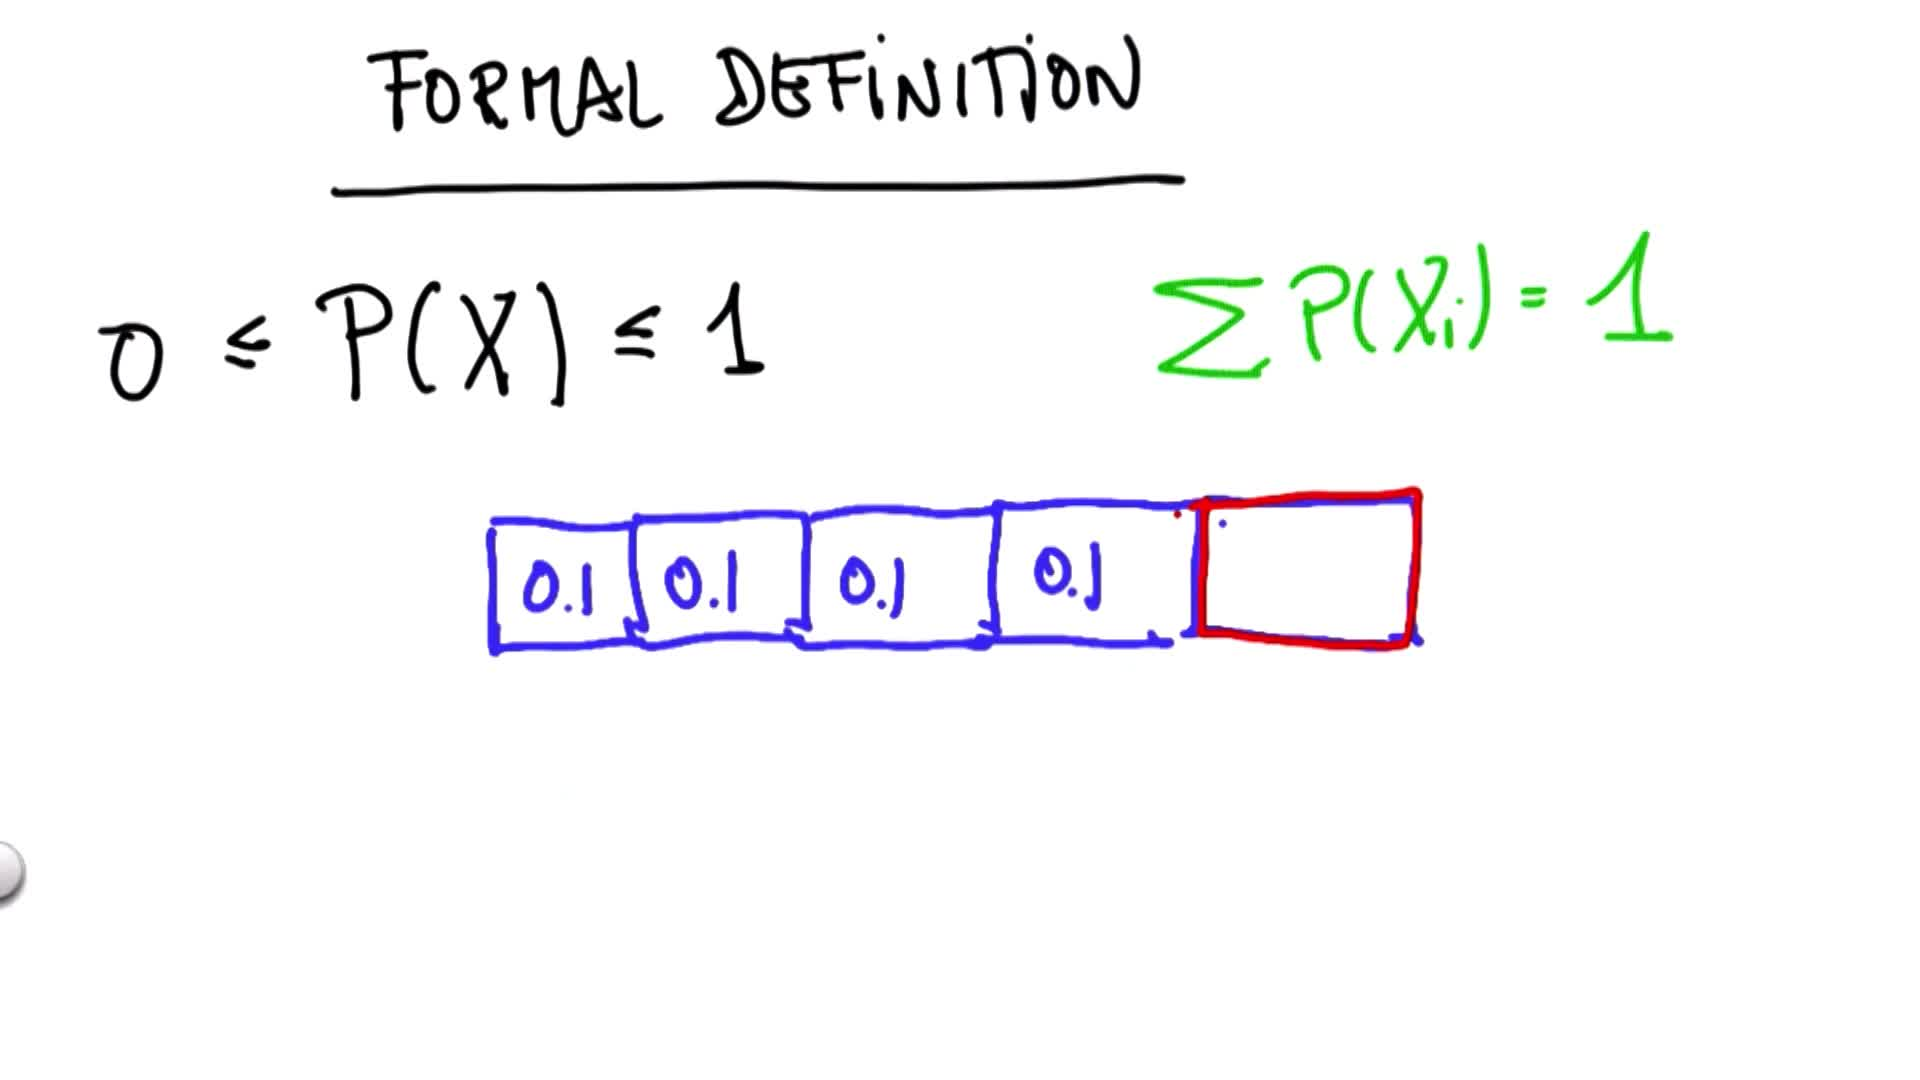 FORMAL DEFINITION
0 ≤ P(X) ≤ 1
∑ P(Xi) = 1
0.1 0.1 0.1 0.1